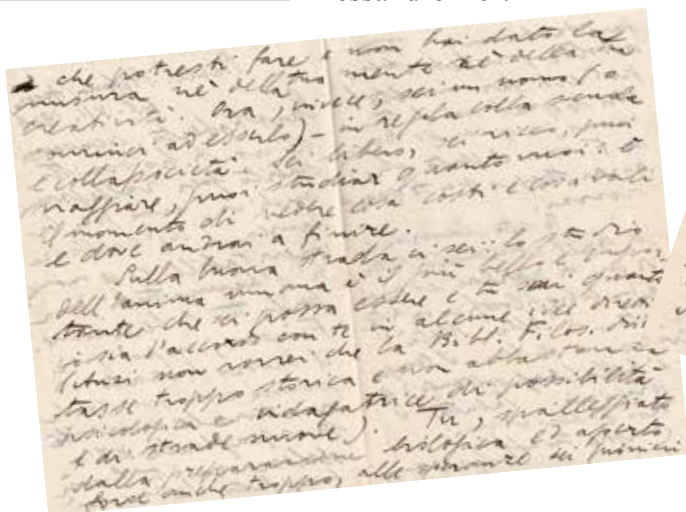 che potresti fare e non hai dato la
misura nè della tua mente nè della tua
creatività. Ora, invece, sei un uomo (o
cominci ad esserlo) – in regola colla scuola
e colla società. Sei libero, sei ricco, puoi
viaggiare, puoi studiar quanto vuoi: è
il momento di vedere cosa costi e cosa vali
e dove andrai a finire.
Sulla buona strada ci sei: lo studio
dell'anima umana è il più bello e
tante che ci possa essere e tu sai quanto
io sia d'accordo con te in alcune idee
(anzi non vorrei che la Bibl. Filos. di
tasse troppo storica e non abbastanza
psicologica e indagatrice di possibilità
e di strade nuove). Tu, spalleggiato
dalla preparazione filologica ed aperto,
forse anche troppo, alle speranze dei